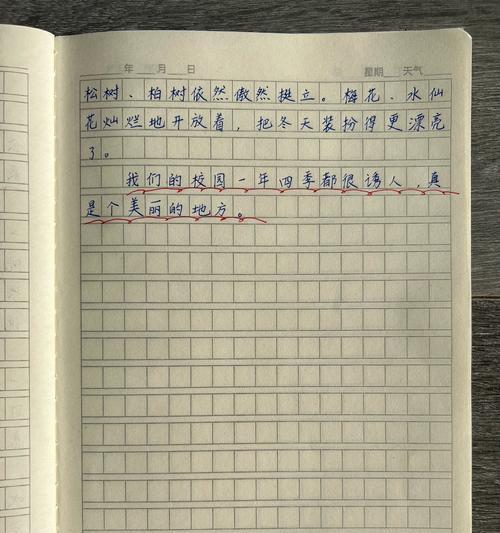 年 月 日 星期 天气
松树、柏树依然傲然挺立。梅花、水仙
花灿烂地开放着，把冬天装扮得更漂亮
了。
我们的校园一年四季都很诱人，真
是个美丽的地方。